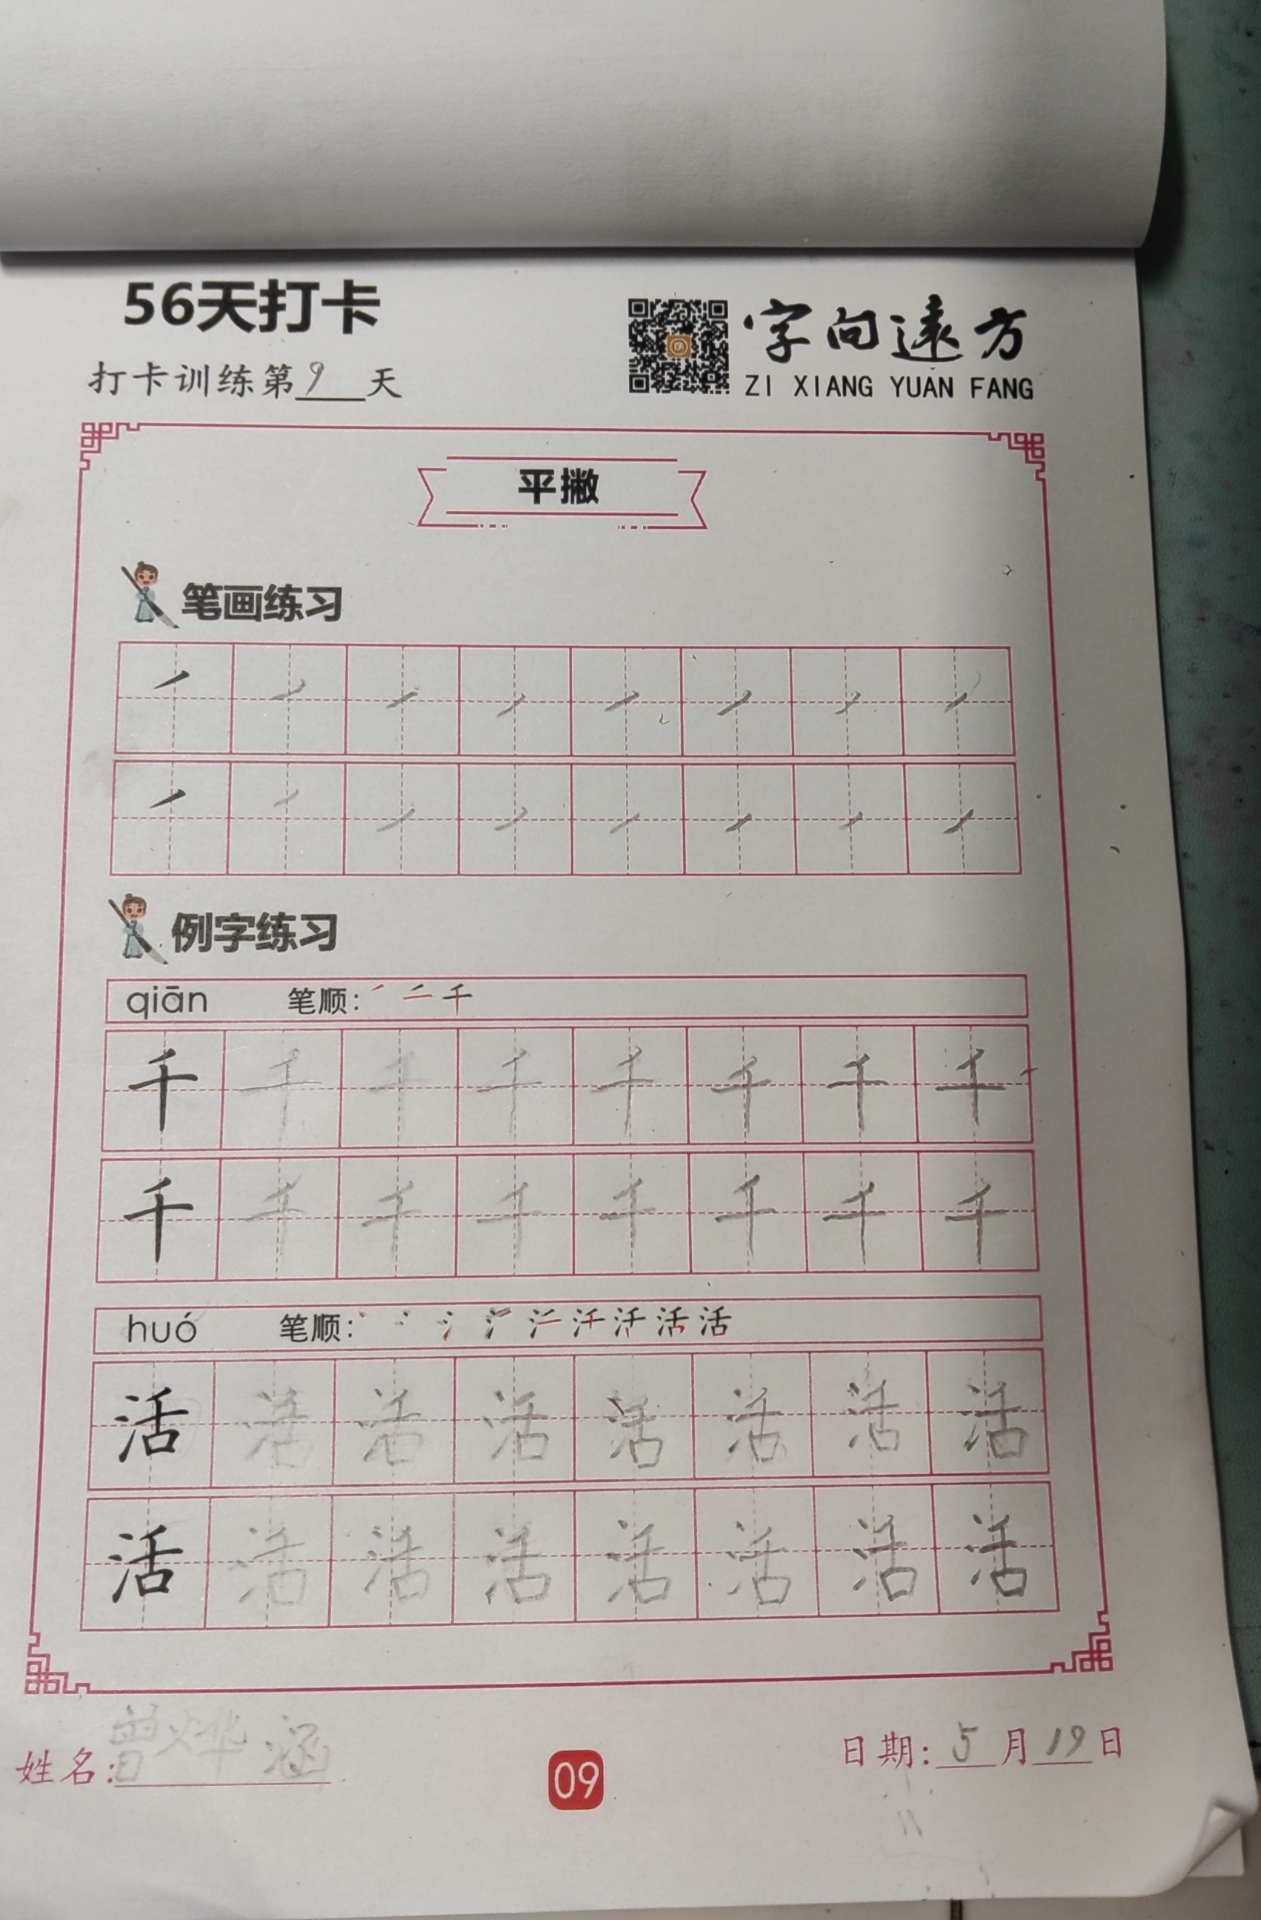 56天打卡
打卡训练第9天
字向远方
ZI XIANG YUAN FANG
平撇
笔画练习
例字练习
qiān 笔顺:
千 千 千 千 千 千 千 千
千 千 千 千 千 千 千 千
huó 笔顺:
活 活 活 活 活 活 活 活
活 活 活 活 活 活 活 活
姓名:曾烨涵
09
日期:5月19日